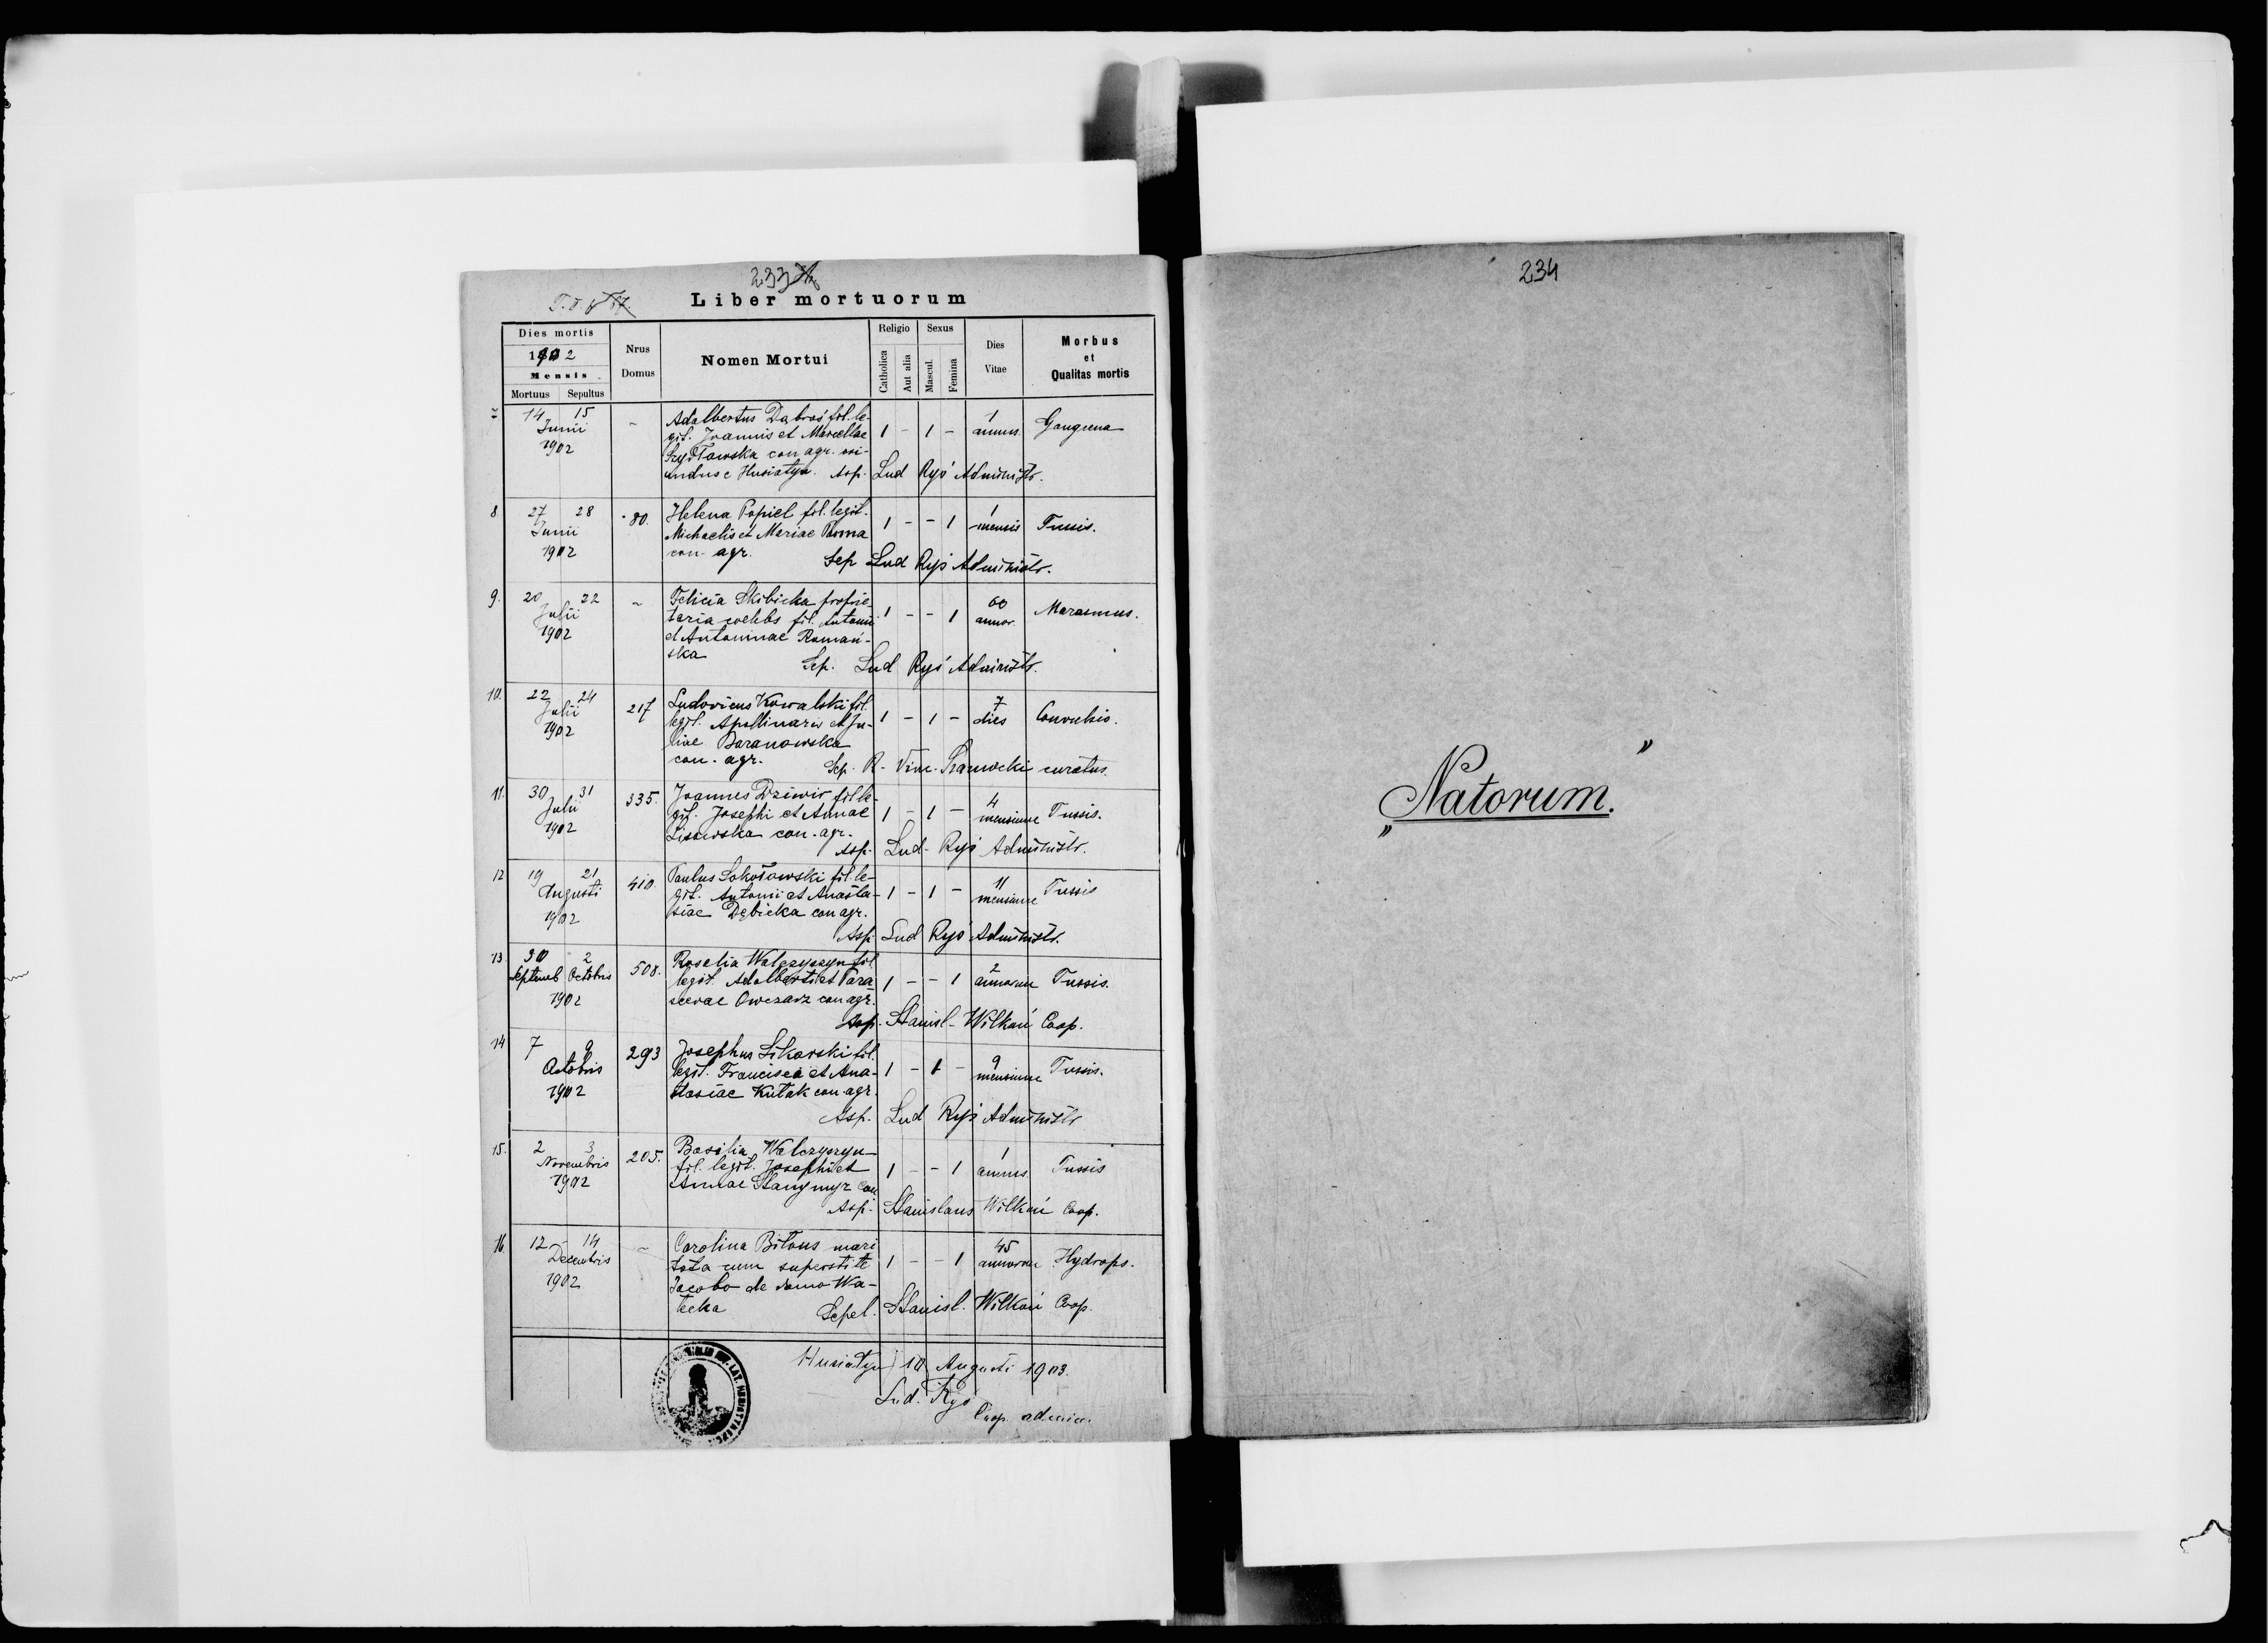 233
Liber mortuorum
Dies mortis
1902
Mensis
Mortuus Sepultus
Nrus Domus
Nomen Mortui
Religio
Catholica
Aut alia
Sexus
Mascul.
Femina
Dies Vitae
Morbus et Qualitas mortis
14 15 Junii 1902 - Adalbertus Dąbroś fil. le-
git. Joannis et Marcellae 1 - 1 - 1 annus. Gangrena
con agr. ori-
undus e Husiatyn. Asp. Lud Ryś Administr.
8 27 28 Junii 1902 80. Helena Popiel fil. legit.
Michaelis et Mariae 1 - - 1 1 mensis Tussis.
con. agr. Sep Lud Ryś Administr.
9. 20 22 Julii 1902 - Felicia Skibicka proprie-
taria coelebs fil. Antonii 1 - - 1 60 annor. Marasmus.
et Antoninae Romań-
ska Sep. Lud Ryś Administr.
10. 22 24 Julii 1902 217 Ludovicus Kowalski fil.
legit. Apollinaris et Ju- 1 - 1 - 7 dies Convulsio.
liae Baranowska
con. agr. Sep. R. Vinc. curatus.
11. 30 31 Julii 1902 335. Joannes Dziwir fil le-
git. Josephi et Annae 1 - 1 - 4 mensium Tussis.
Lisowska con. agr.
Asp. Lud. Ryś Administr.
12 19 21 Augusti 1902 410. Paulus Sokołowski fil. le-
git. Antonii et Anasta- 1 - 1 - 11 mensium Tussis
siae Dębicka con agr.
Asp. Lud Ryś Administr.
13. 30 Septemb 2 Octobris 1902 508. Roselia Walczyszyn fil.
legit. Adalberti et Para- 1 - - 1 2 annorum Tussis.
scevae Owczarz con agr.
Asp. Stanisl. Wilkoń Coop.
14 7 9 Octobris 1902 293 Josephus Sikorski fil.
legit. Francisci et Ana- 1 - 1 - 9 mensium Tussis.
stasiae Kutak con agr.
Asp. Lud Ryś Administr
15. 2 3 Novembris 1902 205. Basilia Walczyszyn
fil. legit. Josephi et 1 - - 1 1 annus. Tussis
Annae con
Asp. Stanislaus Wilkoń Coop.
16. 12 14 Decembris 1902 - Carolina Bilous mari
tata cum superstite 1 - - 1 45 annorum Hydrops.
Jacobo de domo Wa-
tecka Sepel. Stanisl. Wilkoń Coop.
Husiatyn 10 Augusti 1903.
Lud. Ryś
Coop. admin.
234
„Natorum.”